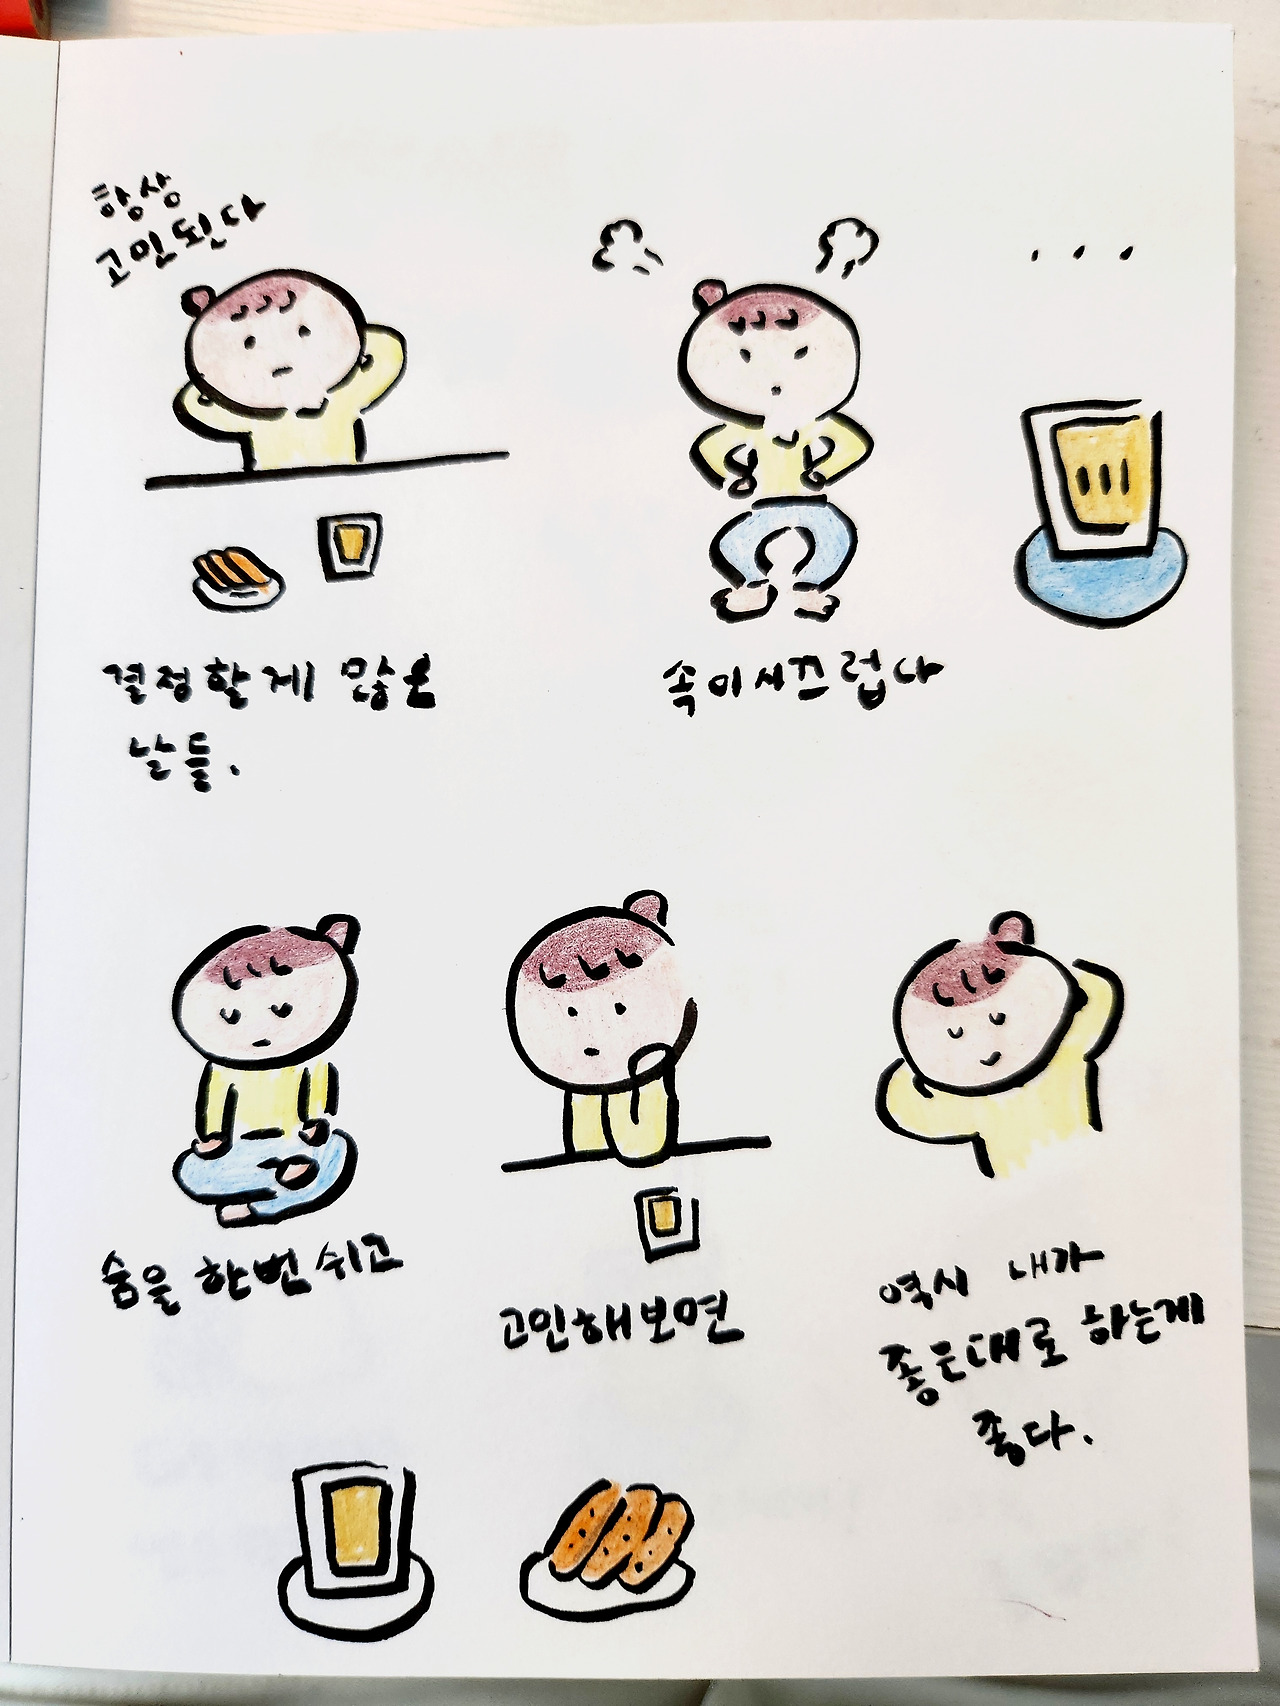 항상
고민된다
. . .
결정할게 많은
날들.
속이시끄럽다
숨을 한번 쉬고
고민해보면
역시 내가
좋은대로 하는게
좋다.